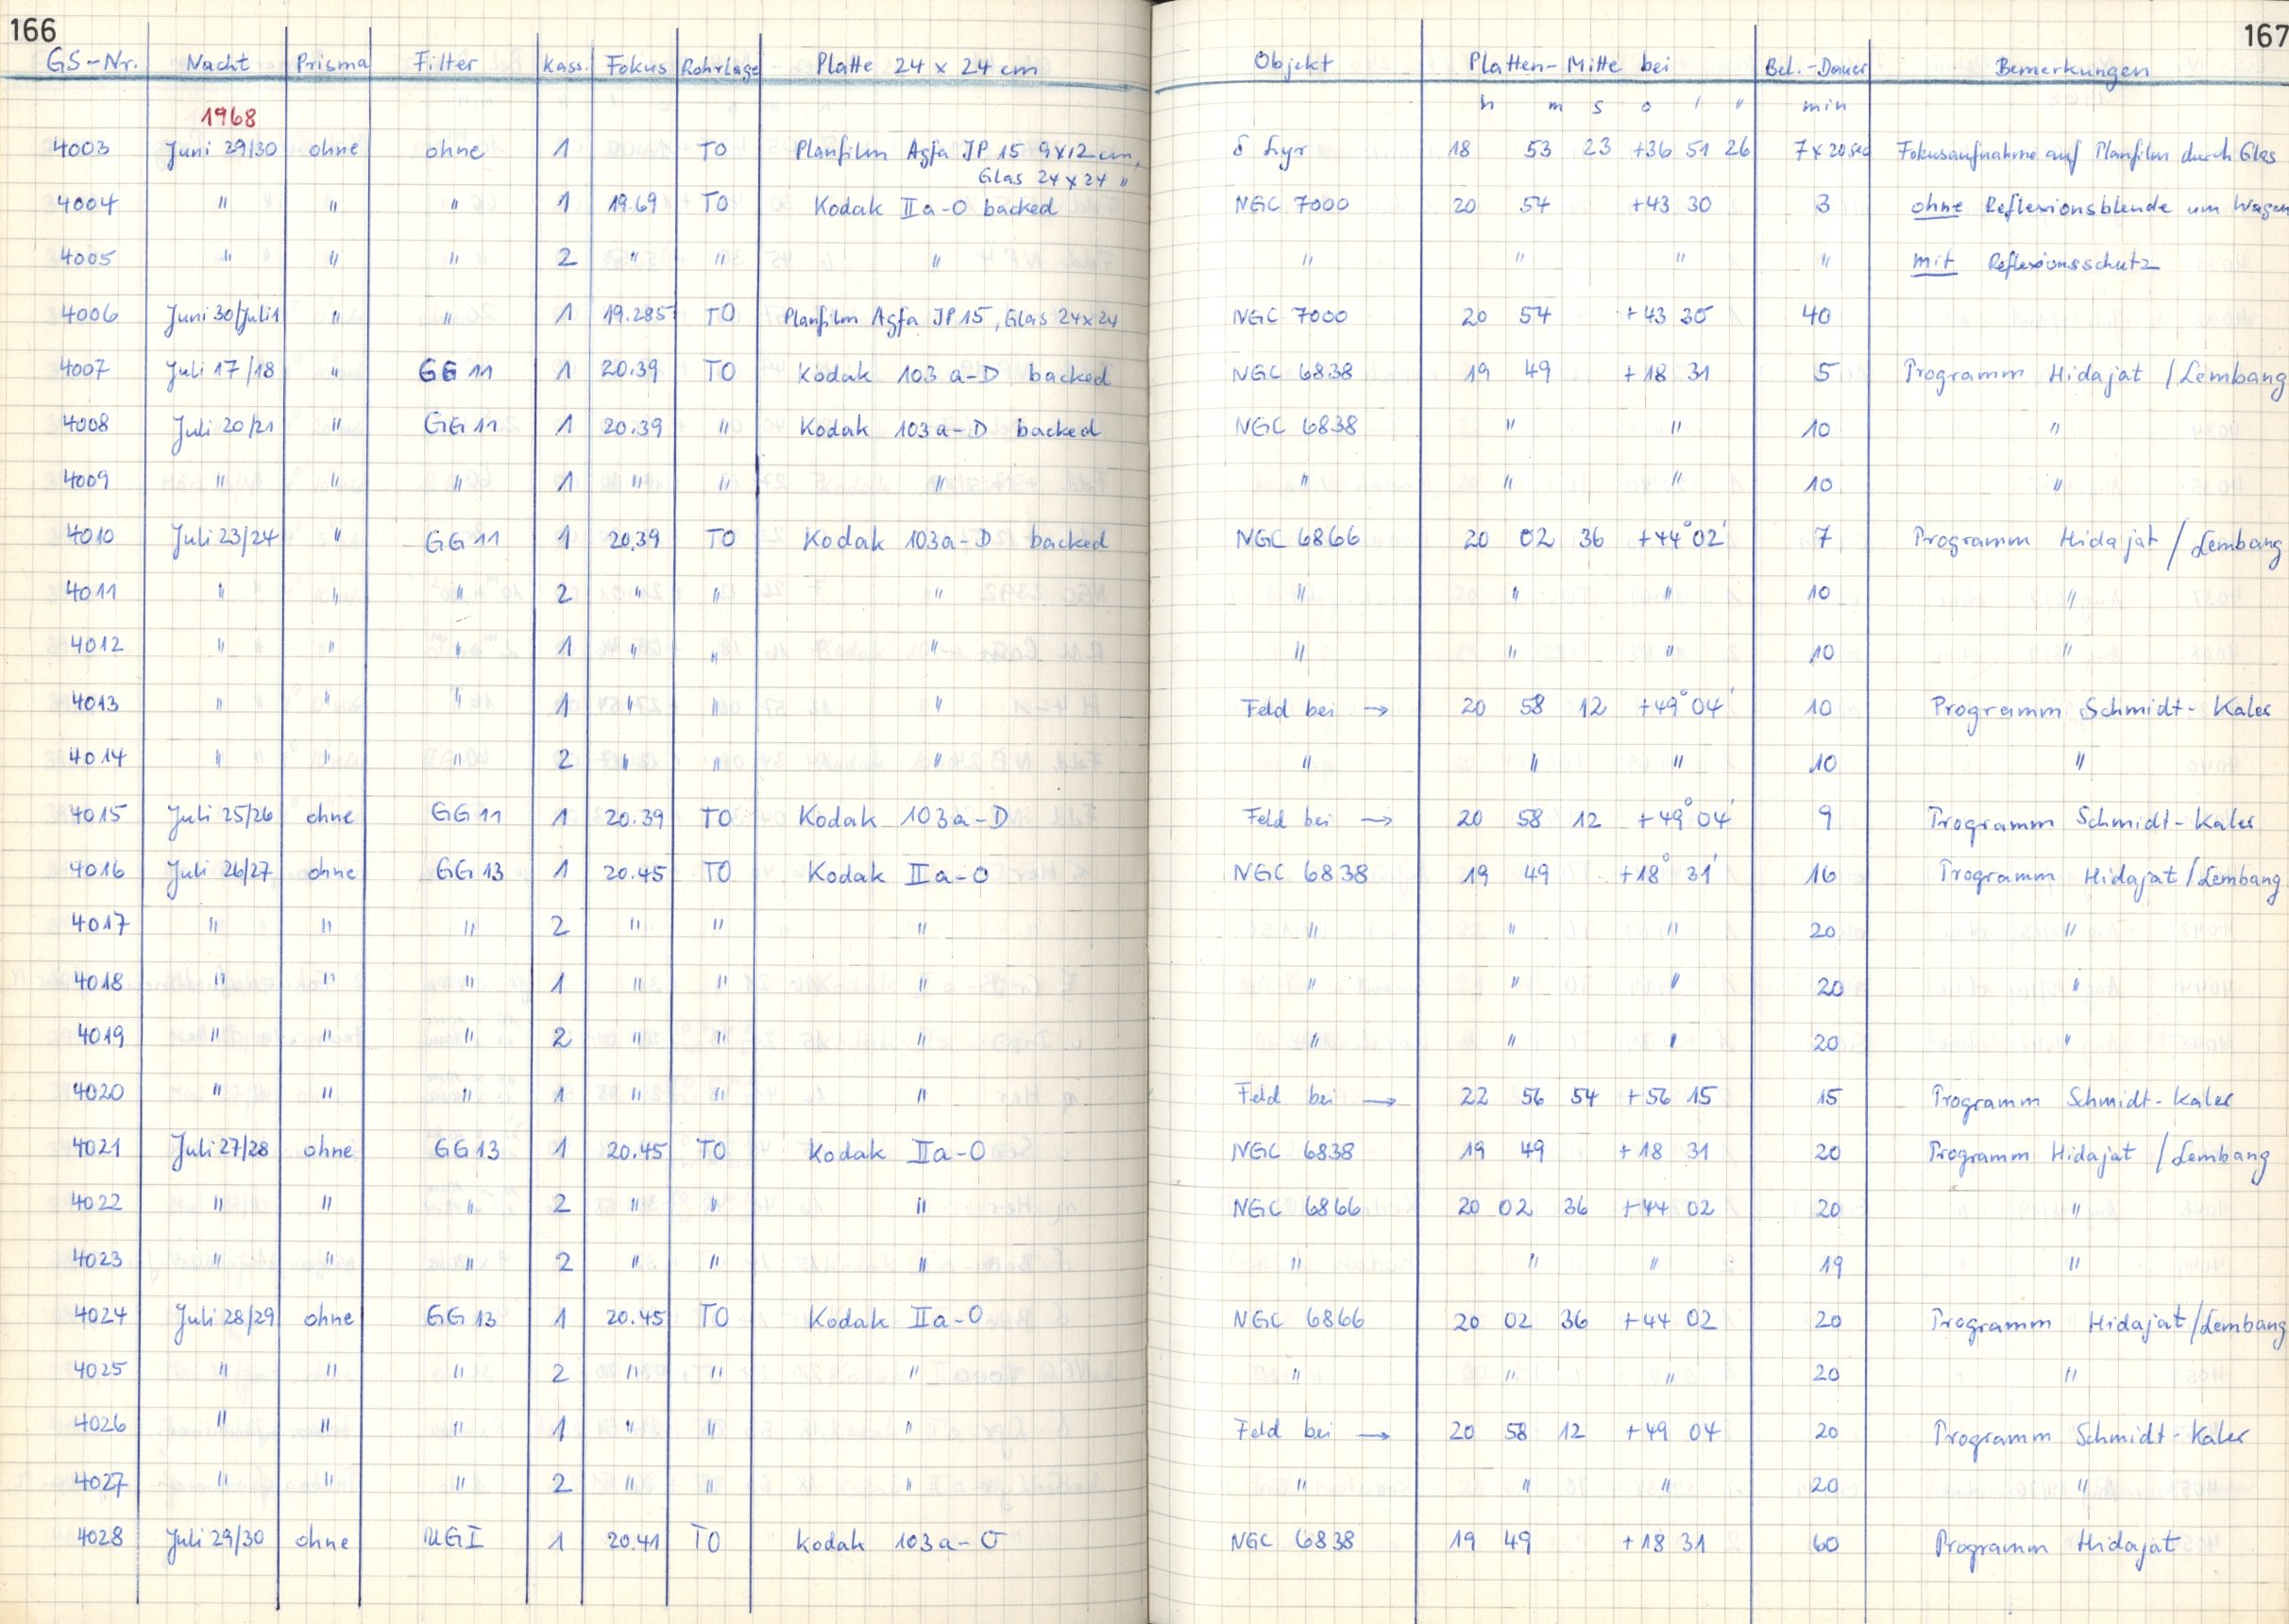 166
167
GS-Nr. Nacht Prisma Filter Kass. Fokus Rohrlage Platte 24 x 24 cm Objekt Platten-Mitte bei Bel.-Dauer Bemerkungen
h m s o ' " min
1968
4003 Juni 29/30 ohne ohne 1 TO Planfilm Agfa JP 15 9x12 cm, δ Lyr 18 53 23 +36 51 26 7 x 20 sec Fokusaufnahme auf Planfilm durch Glas
Glas 24x24 "
4004 " " " 1 19.69 TO Kodak IIa-O backed NGC 7000 20 54 +43 30 3 ohne Reflexionsblende um Wagen
4005 " " " 2 " " " " " " " mit Reflexionsschutz
4006 Juni 30/Juli 1 " " 1 19.285 TO Planfilm Agfa JP 15, Glas 24x24 NGC 7000 20 54 +43 30 40
4007 Juli 17/18 " GG 11 1 20.39 TO Kodak 103 a-D backed NGC 6838 19 49 +18 31 5 Programm Hidajat / Lembang
4008 Juli 20/21 " GG 11 1 20.39 " Kodak 103 a-D backed NGC 6838 " " 10 "
4009 " " " 1 " " " " " " 10 "
4010 Juli 23/24 " GG 11 1 20.39 TO Kodak 103a-D backed NGC 6866 20 02 36 +44° 02' 7 Programm Hidajat / Lembang
4011 " " " 2 " " " " " " 10 "
4012 " " " 1 " " " " " " 10 "
4013 " " " 1 " " " Feld bei → 20 58 12 +49° 04' 10 Programm Schmidt-Kaler
4014 " " " 2 " " " " " " 10 "
4015 Juli 25/26 ohne GG 11 1 20.39 TO Kodak 103a-D Feld bei → 20 58 12 +49° 04' 9 Programm Schmidt-Kaler
4016 Juli 26/27 ohne GG 13 1 20.45 TO Kodak IIa-O NGC 6838 19 49 +18° 31' 16 Programm Hidajat / Lembang
4017 " " " 2 " " " " " " 20 "
4018 " " " 1 " " " " " " 20 "
4019 " " " 2 " " " " " " 20 "
4020 " " " 1 " " " Feld bei → 22 56 54 +56 15 15 Programm Schmidt-Kaler
4021 Juli 27/28 ohne GG 13 1 20.45 TO Kodak IIa-O NGC 6838 19 49 +18 31 20 Programm Hidajat / Lembang
4022 " " " 2 " " " NGC 6866 20 02 36 +44 02 20 "
4023 " " " 2 " " " " " " 19 "
4024 Juli 28/29 ohne GG 13 1 20.45 TO Kodak IIa-O NGC 6866 20 02 36 +44 02 20 Programm Hidajat / Lembang
4025 " " " 2 " " " " " " 20 "
4026 " " " 1 " " " Feld bei → 20 58 12 +49 04 20 Programm Schmidt-Kaler
4027 " " " 2 " " " " " " 20 "
4028 Juli 29/30 ohne UG I 1 20.41 TO Kodak 103a-O NGC 6838 19 49 +18 31 60 Programm Hidajat